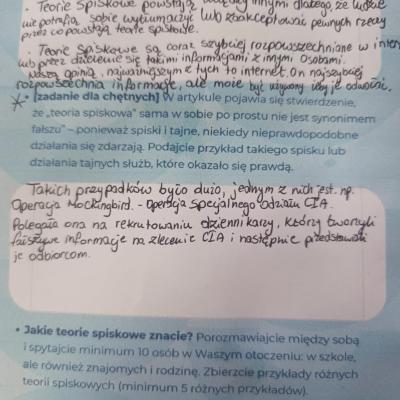 • Teorie Spiskowe powstają innymi dlatego, że ludzie
nie potrafią sobie wytłumaczyć lub zaakceptować pewnych rzeczy
przez co powstają teorie spiskowe.
• Teorie Spiskowe są coraz szybciej rozpowszechniane w inter
lub przez dzielenie się takimi informacjami z innymi osobami.
Naszą opinią, najważniejszym z tych to internet. On najszybciej
rozpowszechnia informacje, ale może być używany żeby je odwrócić.
• [zadanie dla chętnych] W artykule pojawia się stwierdzenie,
że „teoria spiskowa” sama w sobie po prostu nie jest synonimem
fałszu” – ponieważ spiski i tajne, niekiedy nieprawdopodobne
działania się zdarzają. Podajcie przykład takiego spisku lub
działania tajnych służb, które okazało się prawdą.
Takich przypadków było dużo, jednym z nich jest np.
Operacja Mockingbird. - Operacja specjalnego Odziału CIA.
Polegała ona na rekrutowaniu dziennikarzy, którzy tworzyli
fałszywe informacje na zlecenie CIA i następnie przedstawiali
je odbiorcom.
• Jakie teorie spiskowe znacie? Porozmawiajcie między sobą
i spytajcie minimum 10 osób w Waszym otoczeniu: w szkole,
ale również znajomych i rodzinę. Zbierzcie przykłady różnych
teorii spiskowych (minimum 5 różnych przykładów).